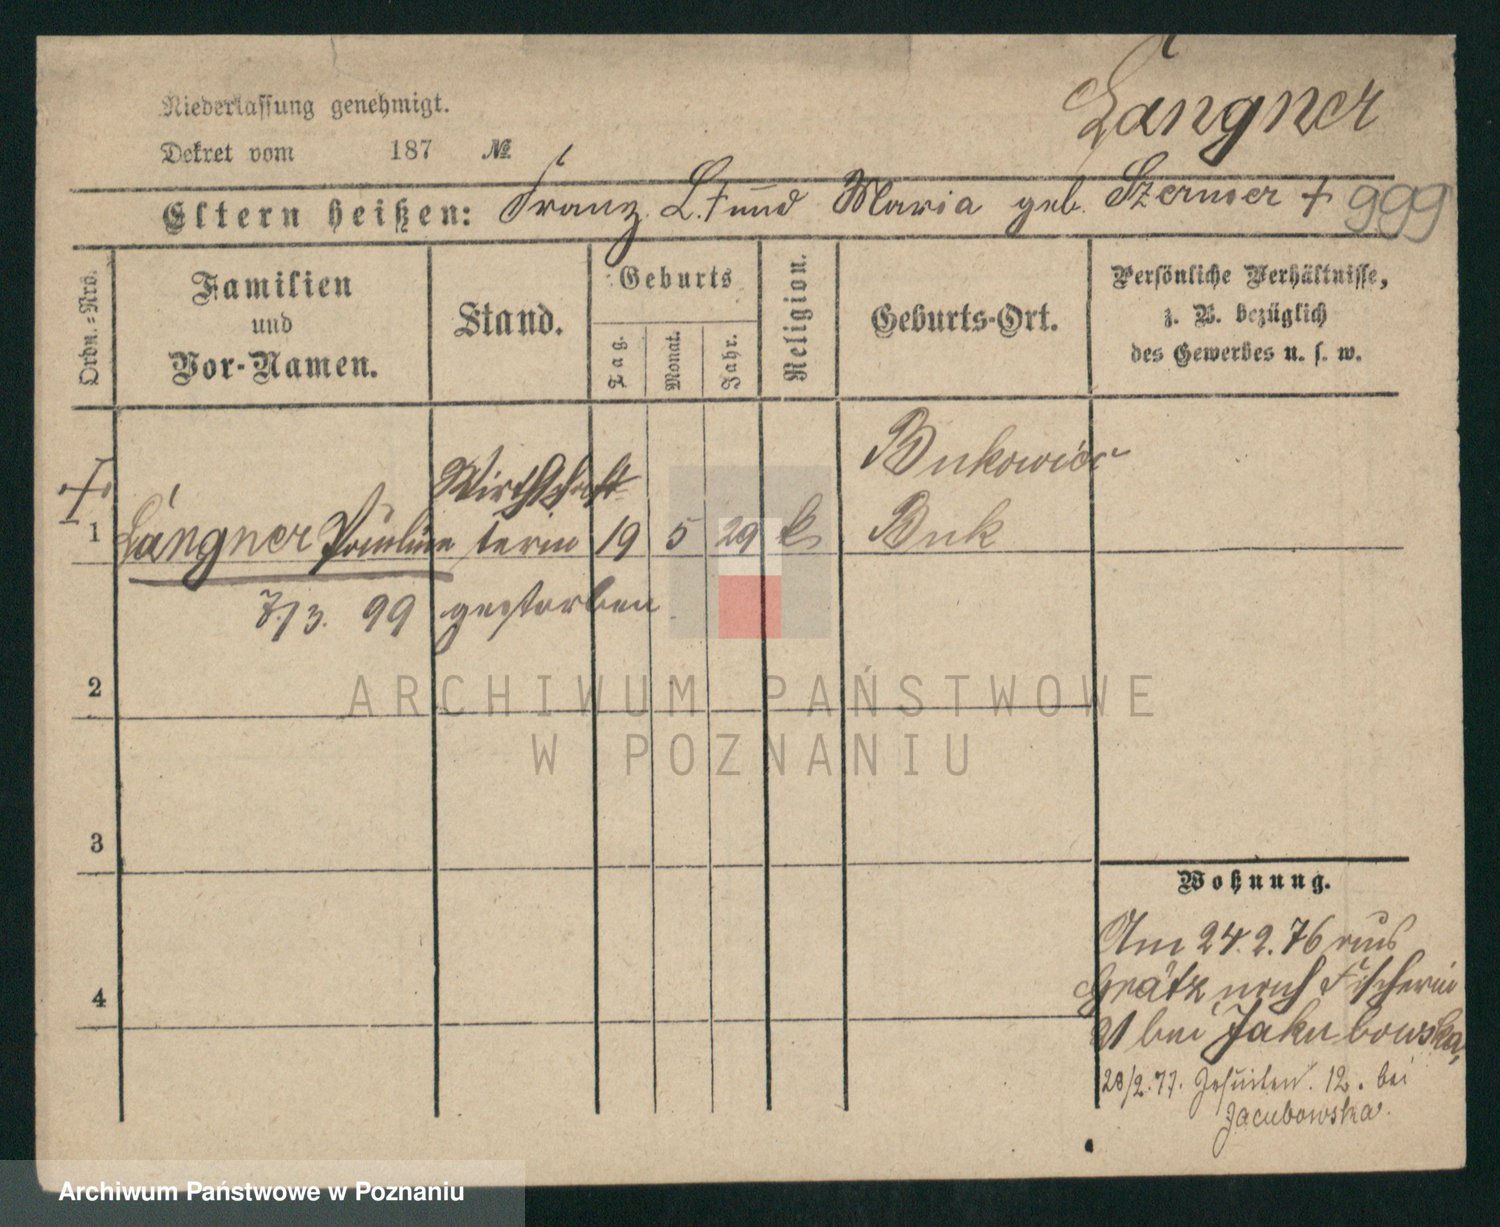 Niederlassung genehmigt.
Dekret vom 187 №
Langner
Eltern heißen: Franz L. † und Maria geb. Szermer †
999
Ordn.-Nro.
Familien
und
Vor-Namen.
Stand.
Geburts
Tag.
Monat.
Jahr.
Religion.
Geburts-Ort.
Persönliche Verhältnisse,
z. B. bezüglich
des Gewerbes u. s. w.
†
1
Langner Pauline
Wirthschaf-
terin
19
5
29
k
Bukowiec
Buk
7./3. 99 gestorben
2
3
4
Wohnung.
Am 24.2.76 aus
Grätz nach Fischerei
21 bei Jakubowska,
28/2.77. Jesuiten. 12. bei
Jacubowska.
ARCHIWUM PAŃSTWOWE
W POZNANIU
Archiwum Państwowe w Poznaniu